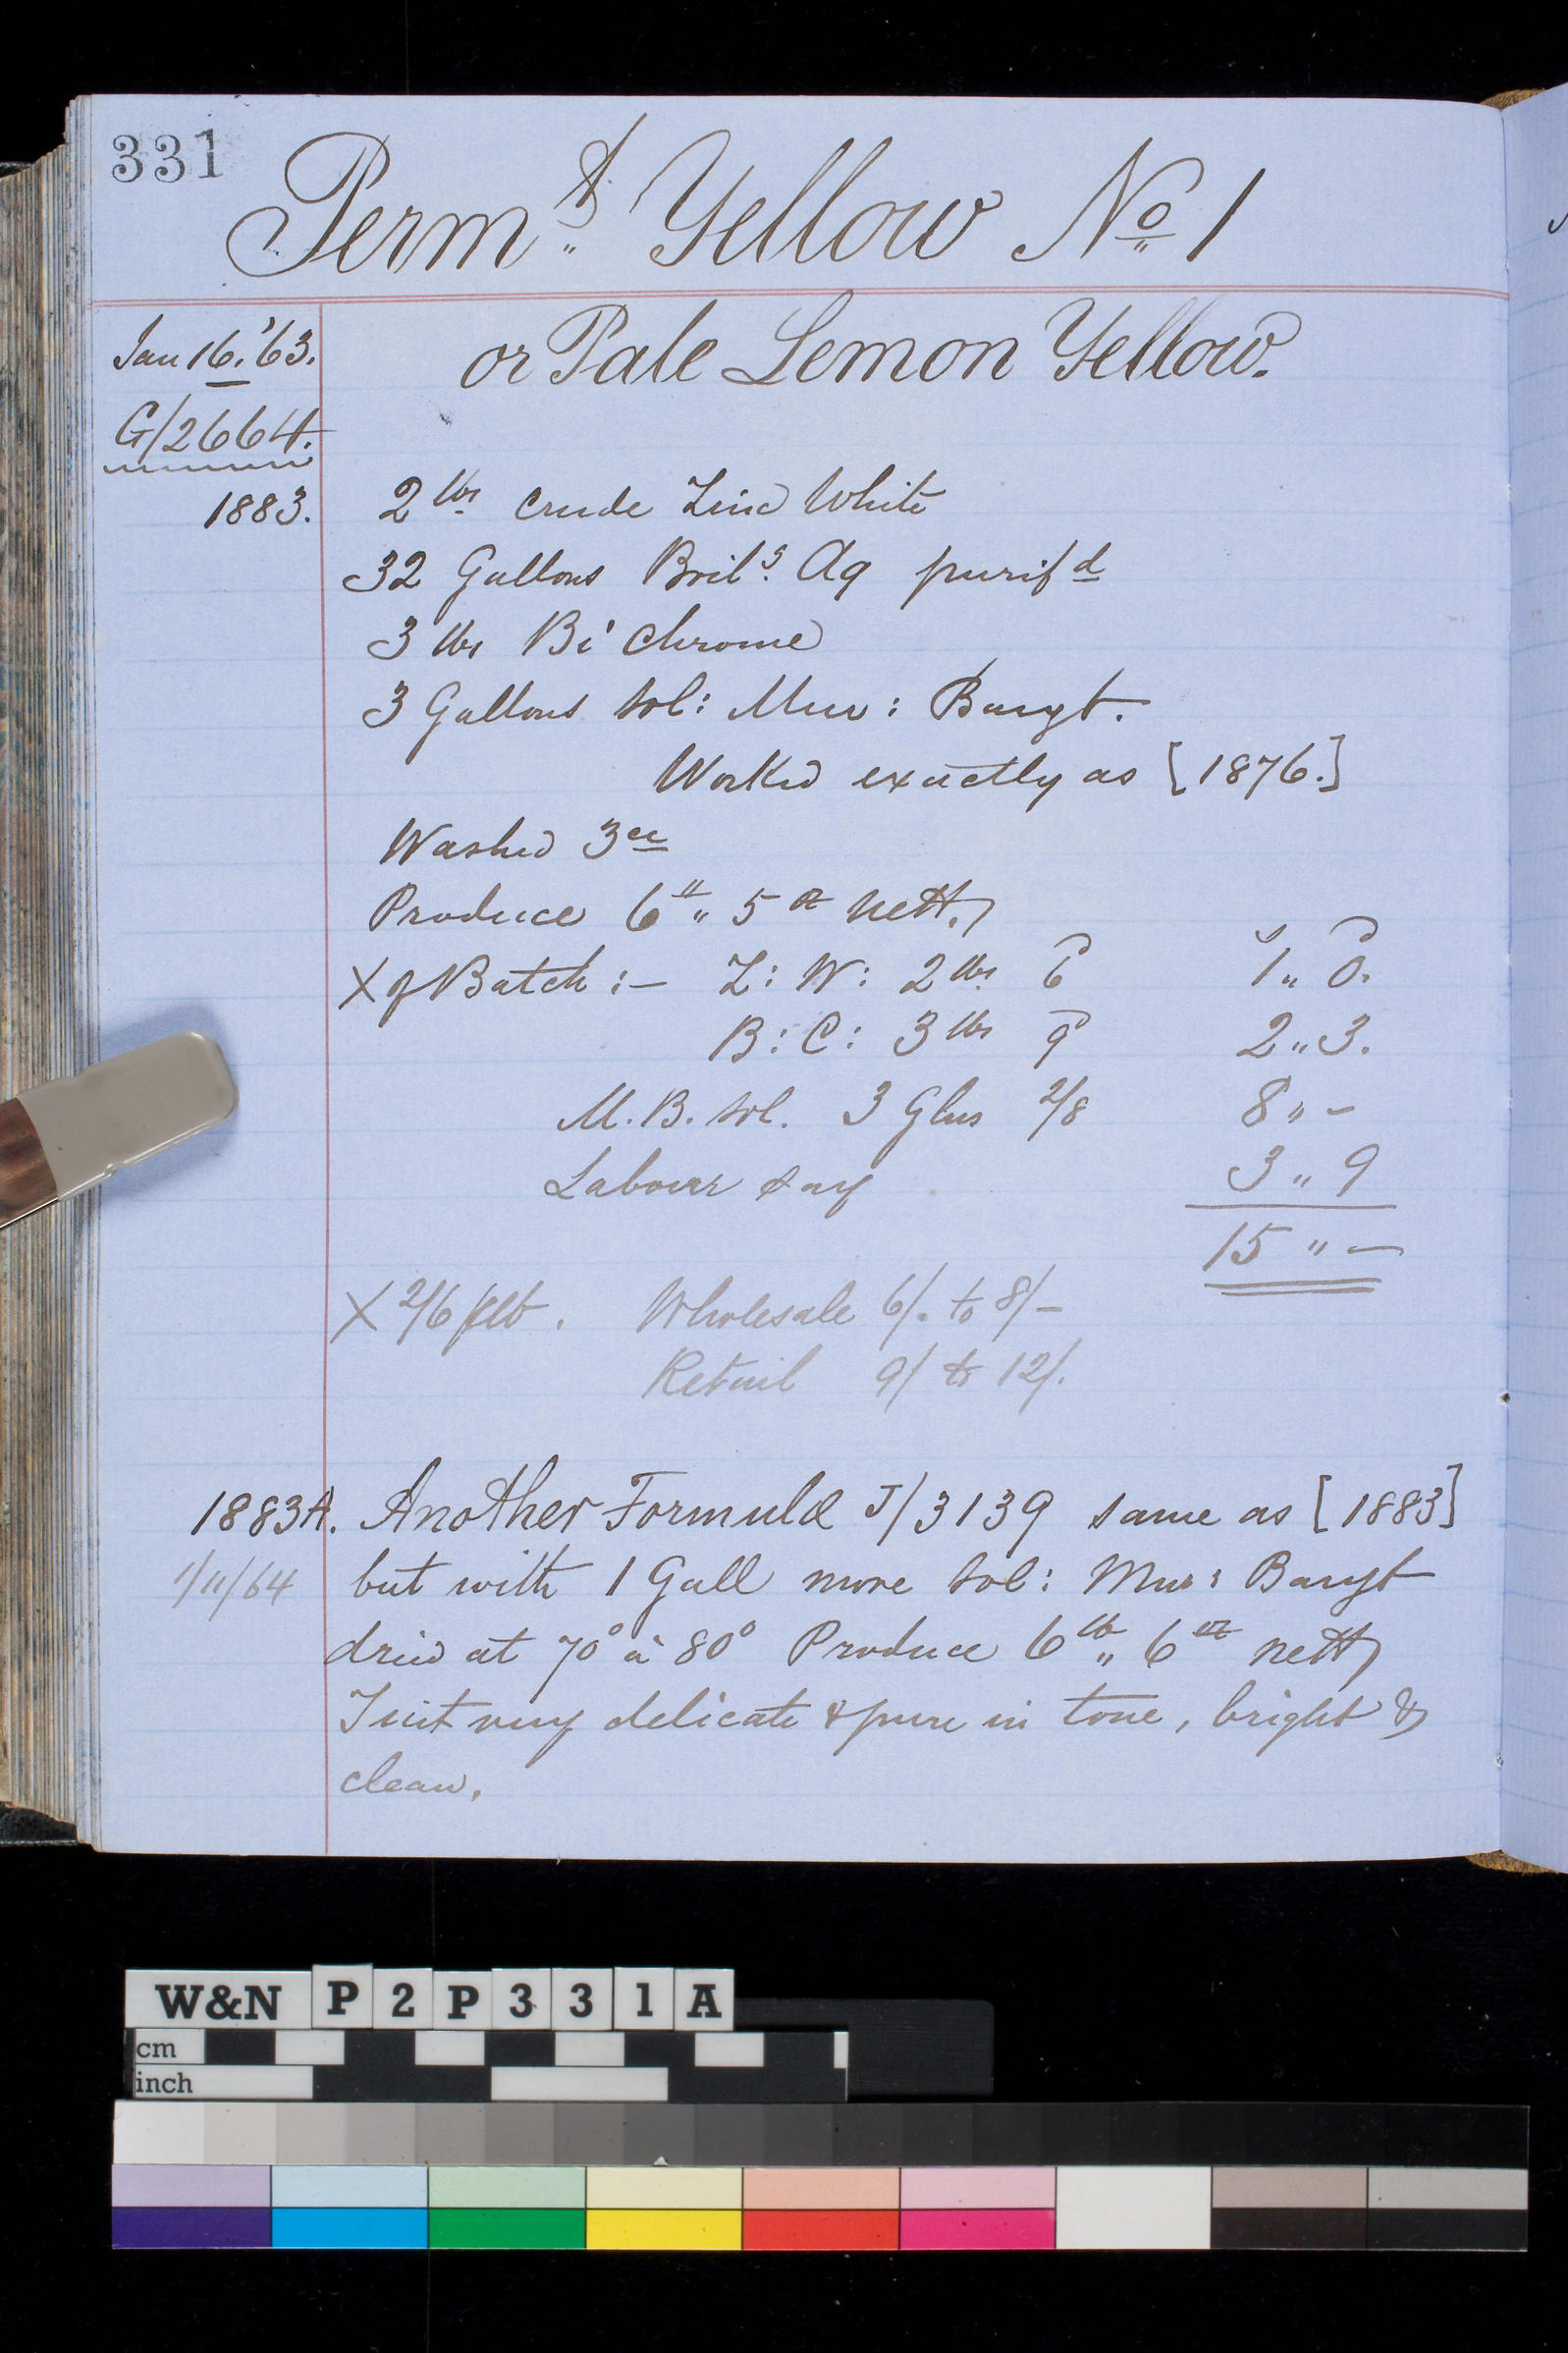 331
Permt. Yellow No 1
Jan 16. '63.
or Pale Lemon Yellow.
G/2664.
1883.
2 lbs crude Zinc White
32 Gallons Boilg. Aq purifd
3 lbs Bi' Chrome
3 Gallons sol: Mur: Baryt.
Worked exactly as [1876.]
Washed 3ce
Produce 6 lb " 5 oz nett.
X of Batch :— Z: W: 2 lbs 6 1 " 0.
B: C: 3 lbs 9 2 " 3.
M. B. sol. 3 Glns 2/8 8 " –
Labour say 3 " 9
15 " –
X 2/6 p lb. Wholesale 6/. to 8/–
Retail 9/ to 12/.
1883A. Another Formula J/3139 same as [1883]
1/11/64 but with 1 Gall more sol: Mur: Baryt
dried at 70° à 80° Produce 6 lb " 6 oz nett
Tint very delicate & pure in tone, bright &
clean.
W&N P2P331A
cm
inch